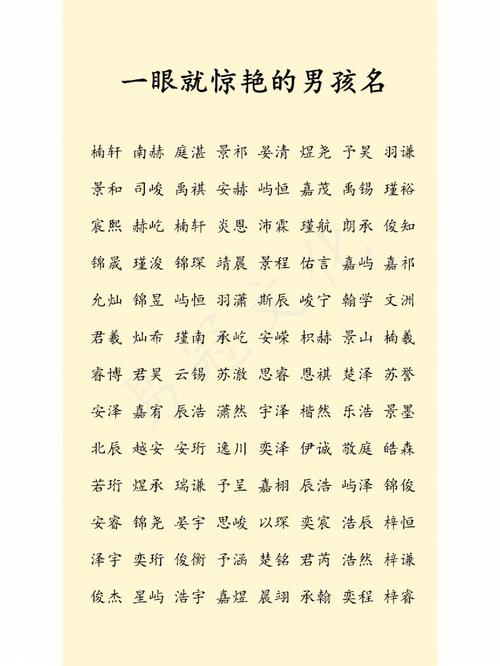 一眼就惊艳的男孩名
楠轩 南赫 庭湛 景祁 晏清 煜尧 予昊 羽谦
景和 司峻 禹祺 安赫 屿恒 嘉茂 禹锡 瑾裕
宸熙 赫屹 楠轩 炎恩 沛霖 瑾航 朗承 俊知
锦晟 瑾浚 锦琛 靖晨 景程 佑言 嘉屿 嘉祁
允灿 锦昱 屿恒 羽潇 斯辰 峻宁 翰学 文洲
君羲 灿希 瑾南 承屹 安嵘 枳赫 景山 楠羲
睿博 君昊 云锡 苏澈 思睿 恩祺 楚泽 苏誉
安泽 嘉宥 辰浩 潇然 宇泽 楷然 乐浩 景墨
北辰 越安 安珩 逸川 奕泽 伊诚 敬庭 皓森
若珩 煜承 瑞谦 予呈 嘉栩 辰浩 屿泽 锦俊
安睿 锦尧 晏宇 思峻 以琛 奕宸 浩辰 梓恒
泽宇 奕珩 俊衡 予涵 楚铭 君芮 浩然 梓谦
俊杰 星屿 浩宇 嘉煜 晨翊 承翰 奕程 梓睿